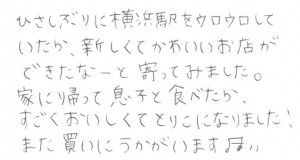 ひさしぶりに横浜駅をウロウロして
いたが、新しくてかわいいお店が
できたなーと寄ってみました。
家にり帰って息子と食べたが、
すごくおいしくてとりこになりました!
また買いにうかがいます♫ 〃